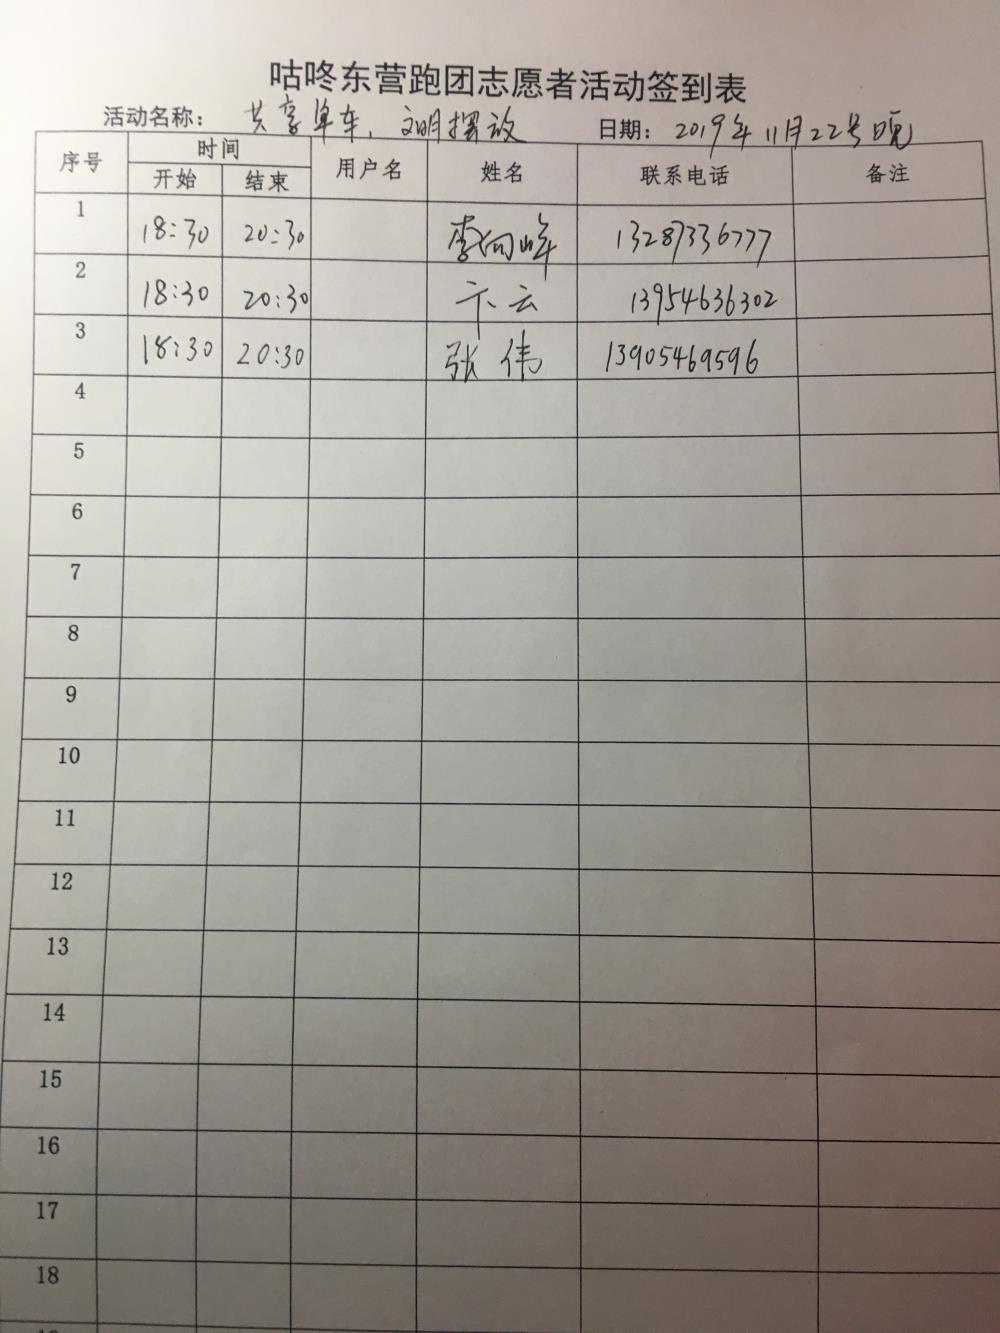 咕咚东营跑团志愿者活动签到表
活动名称： 共享单车，文明摆放 日期： 2019年11月22号晚
序号 时间 用户名 姓名 联系电话 备注
开始 结束
1 18:30 20:30 李向峰 13287336777
2 18:30 20:30 卞云 13954636302
3 18:30 20:30 张伟 13905469596
4
5
6
7
8
9
10
11
12
13
14
15
16
17
18